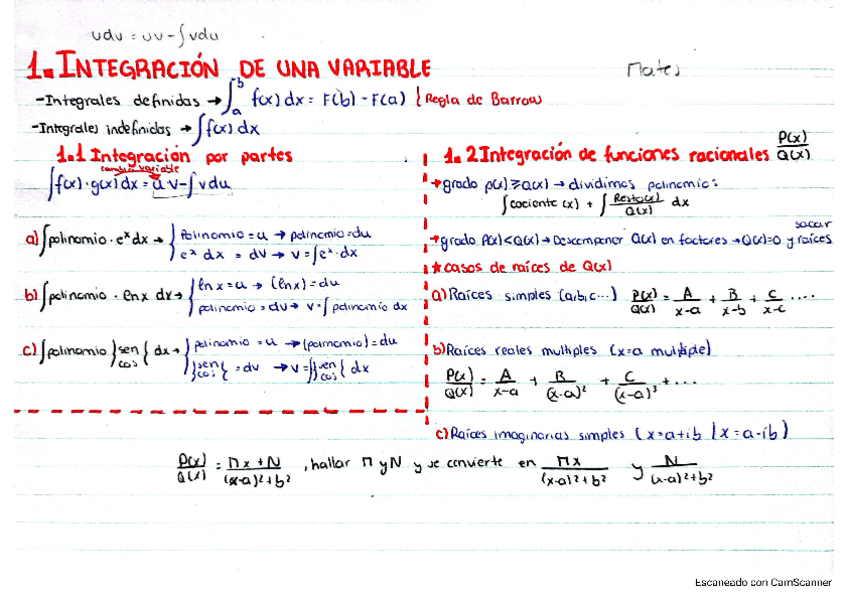 udv = uv - ∫vdu
1. INTEGRACIÓN DE UNA VARIABLE
Mates
-Integrales definidas → ∫_a^b f(x) dx = F(b) - F(a) { Regla de Barrow
-Integrales indefinidas → ∫f(x) dx
1.1 Integración por partes
cambio variable
∫f(x)·g(x)dx = u v - ∫vdu
a) ∫polinomio · e^x dx → { Polinomio = u → polinomio = du
e^x dx = dv → v = ∫e^x · dx
b) ∫polinomio · lnx dx → { lnx = u → (lnx) = du
polinomio = dv → v = ∫polinomio dx
c) ∫polinomio } sen cos { dx → { polinomio = u → (polinomio) = du
} sen cos { = dv → v = ∫} sen cos { dx
1.2 Integración de funciones racionales P(x)/Q(x)
→ grado p(x) ≥ Q(x) → dividimos polinomio:
∫cociente (x) + ∫ Resto(x)/Q(x) dx
→ grado P(x) < Q(x) → Descomponer Q(x) en factores → Q(x)=0 y sacar raíces
* casos de raíces de Q(x)
a) Raíces simples (a,b,c...) P(x)/Q(x) = A/x-a + B/x-b + C/x-c ....
b) Raíces reales multiples (x=a multiple)
P(x)/Q(x) = A/x-a + B/(x-a)² + C/(x-a)³ + ...
c) Raíces imaginarias simples (x=a+ib / x=a-ib)
P(x)/Q(x) = Mx+N/(x-a)²+b² , hallar M y N y se convierte en Mx/(x-a)²+b² y N/(x-a)²+b²
Escaneado con CamScanner